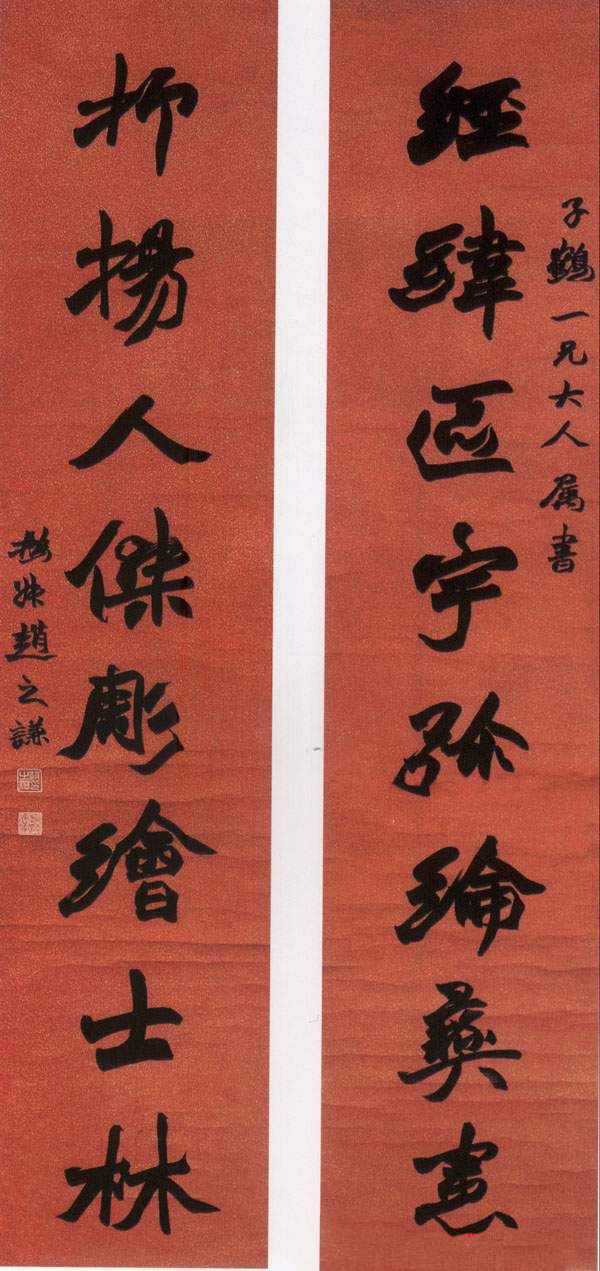 子鶴一兄大人屬書
經緯區宇弥綸彝憲
抑揚人傑彫繪士林
撝叔趙之謙